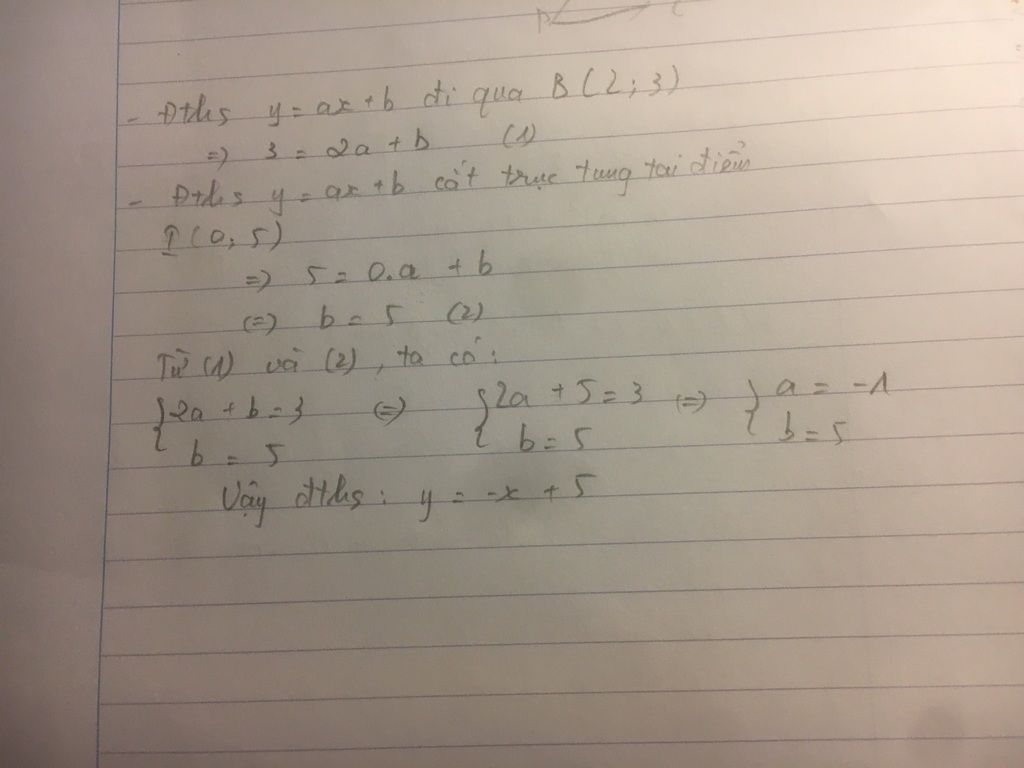 - Đths y = ax + b đi qua B (2; 3)
=> 3 = 2a + b (1)
- Đths y = ax + b cắt trục tung tại điểm
I (0, 5)
=> 5 = 0.a + b
<=> b = 5 (2)
Từ (1) và (2), ta có:
{2a + b = 3 <=> {2a + 5 = 3 <=> {a = -1
b = 5 b = 5 b = 5
Vậy đths: y = -x + 5